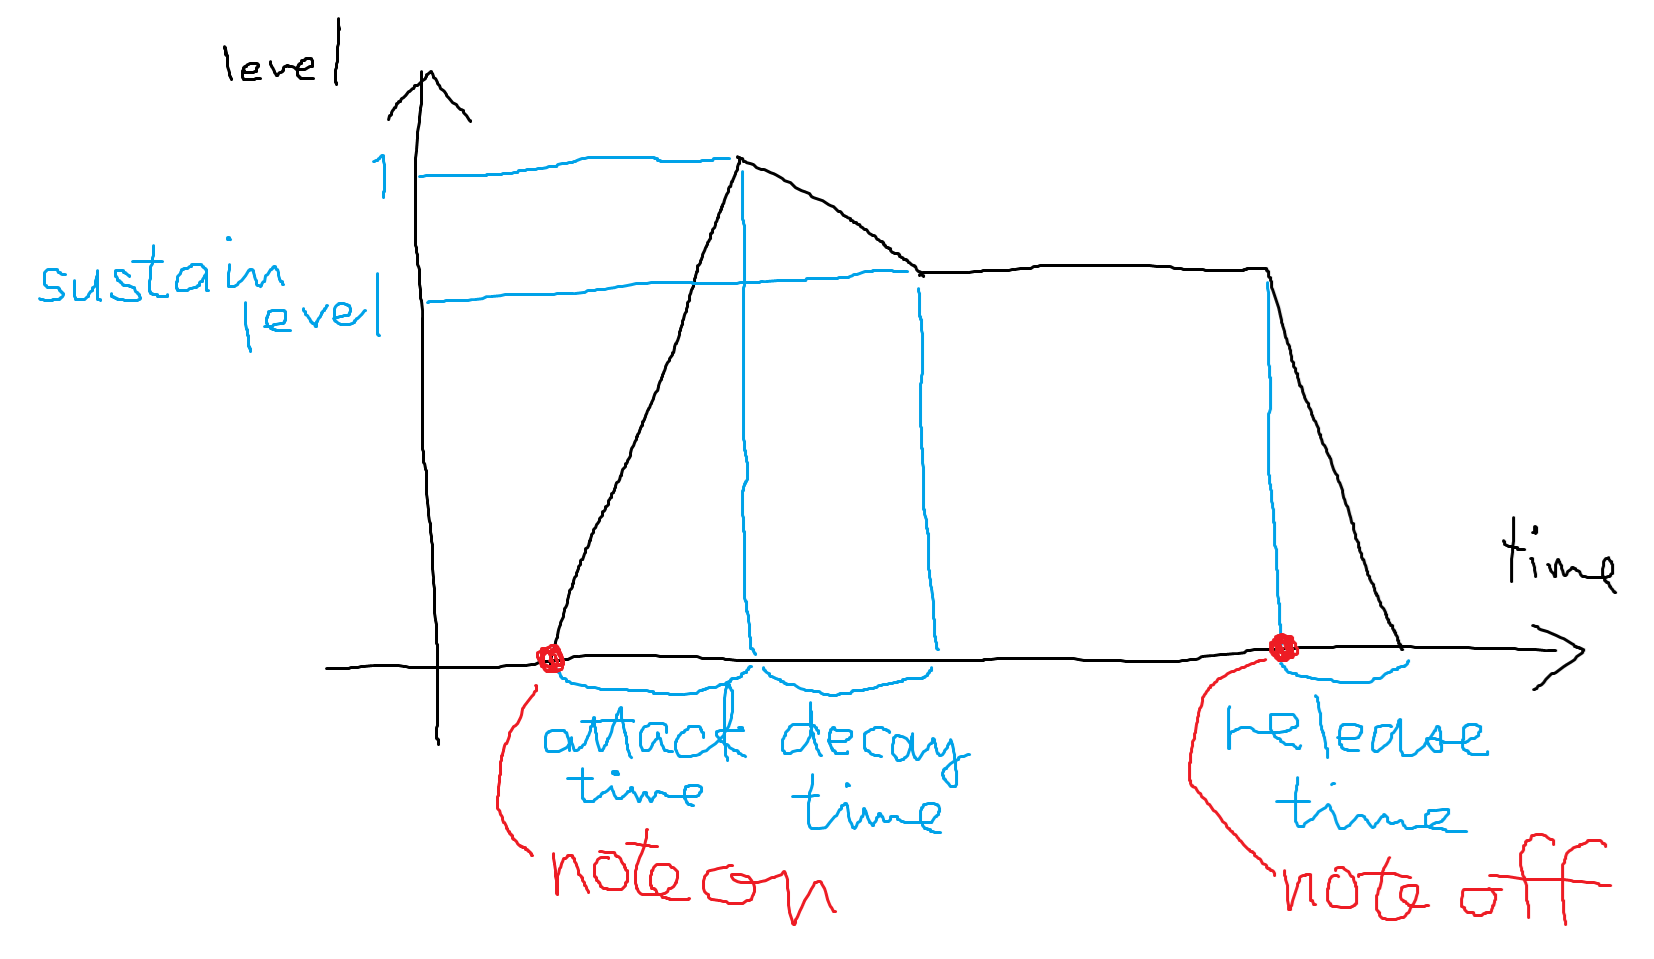 level
1
sustain
level
time
attack decay
time time
release
time
note on
note off